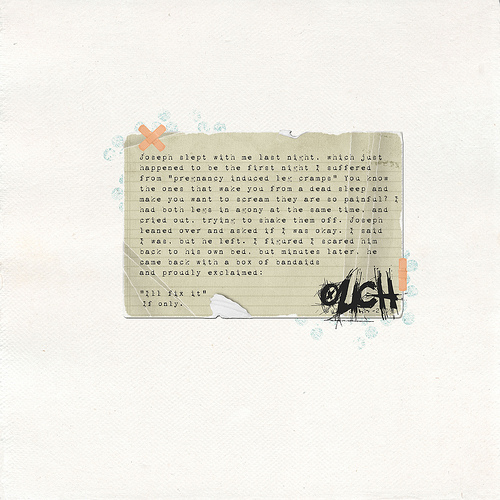 Joseph slept with me last night, which just
happened to be the first night I suffered
from "pregnancy induced leg cramps" You know
the ones that wake you from a dead sleep and
make you want to scream they are so painful? I
had both legs in agony at the same time, and
cried out, trying to shake them off. Joseph
leaned over and asked if I was okay. I said
I was, but he left. I figured I scared him
back to his own bed, but minutes later, he
came back with a box of bandaids
and proudly exclaimed:
"Ill fix it"
If only.
OUCH